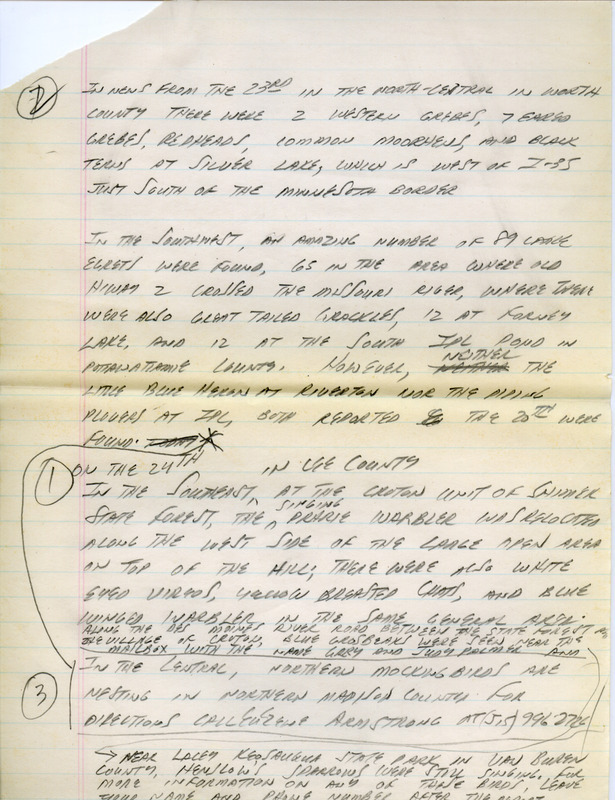 2
IN NEWS FROM THE 23RD IN THE NORTH-CENTRAL IN WORTH
COUNTY THERE WERE 2 WESTERN GREBES, 7 EARED
GREBES, REDHEADS, COMMON MOORHENS, AND BLACK
TERNS AT SILVER LAKE, WHICH IS WEST OF I-35
JUST SOUTH OF THE MINNESOTA BORDER
IN THE SOUTHWEST, AN AMAZING NUMBER OF 89 
EGRETS WERE FOUND, 65 IN THE AREA WHERE OLD
HIWAY 2 CROSSED THE MISSOURI RIVER, WHERE THERE
WERE ALSO GREAT TAILED GRACKLES, 12 AT FORNEY
LAKE, AND 12 AT THE SOUTH IPL POND IN
POTTAWATTAMIE COUNTY. HOWEVER, NEITHER THE
LITTLE BLUE HERON AT RIVERTON NOR THE PIPING
PLOVERS AT IPL, BOTH REPORTED THE 20TH WERE
FOUND.
ON THE 24TH IN LEE COUNTY
1
IN THE SOUTHEAST, AT THE CROTON UNIT OF SHIMEK
STATE FOREST, THE SINGING PRARIE WARBLER WAS RELOCATED
ALONG THE WEST SIDE OF THE LARGE OPEN AREA
ON TOP OF THE HILL; THERE WERE ALSO WHITE
EYED VIREOS, YELLOW BREASTED CHATS, AND BLUE
WINGED WARBLER IN THE SAME GENERAL AREA.
ALONG THE DES MOINES RIVER ROAD BETWEEN THE STATE FOREST &
THE VILLAGE OF CROTON, BLUE GROSBEAKS WERE SEEN NEAR THE
MAILBOX WITH THE NAME GARY AND JUDY PALMER AND
3
IN THE CENTRAL, NORTHERN MOCKINGBIRDS ARE
NESTING IN NORTHERN MADISON COUNTY FOR
DIRECTIONS CALL EUGENE ARMSTRONG AT (515) 996 2726
NEAR LACEY KEOSAUQUA STATE PARK IN VAN BUREN
COUNTY, HENSLOW'S SPARROWS WERE STILL SINGING. FOR
MORE INFORMATION ON ANY OF THESE BIRDS, LEAVE
YOUR NAME AND PHONE NUMBER AFTER THE